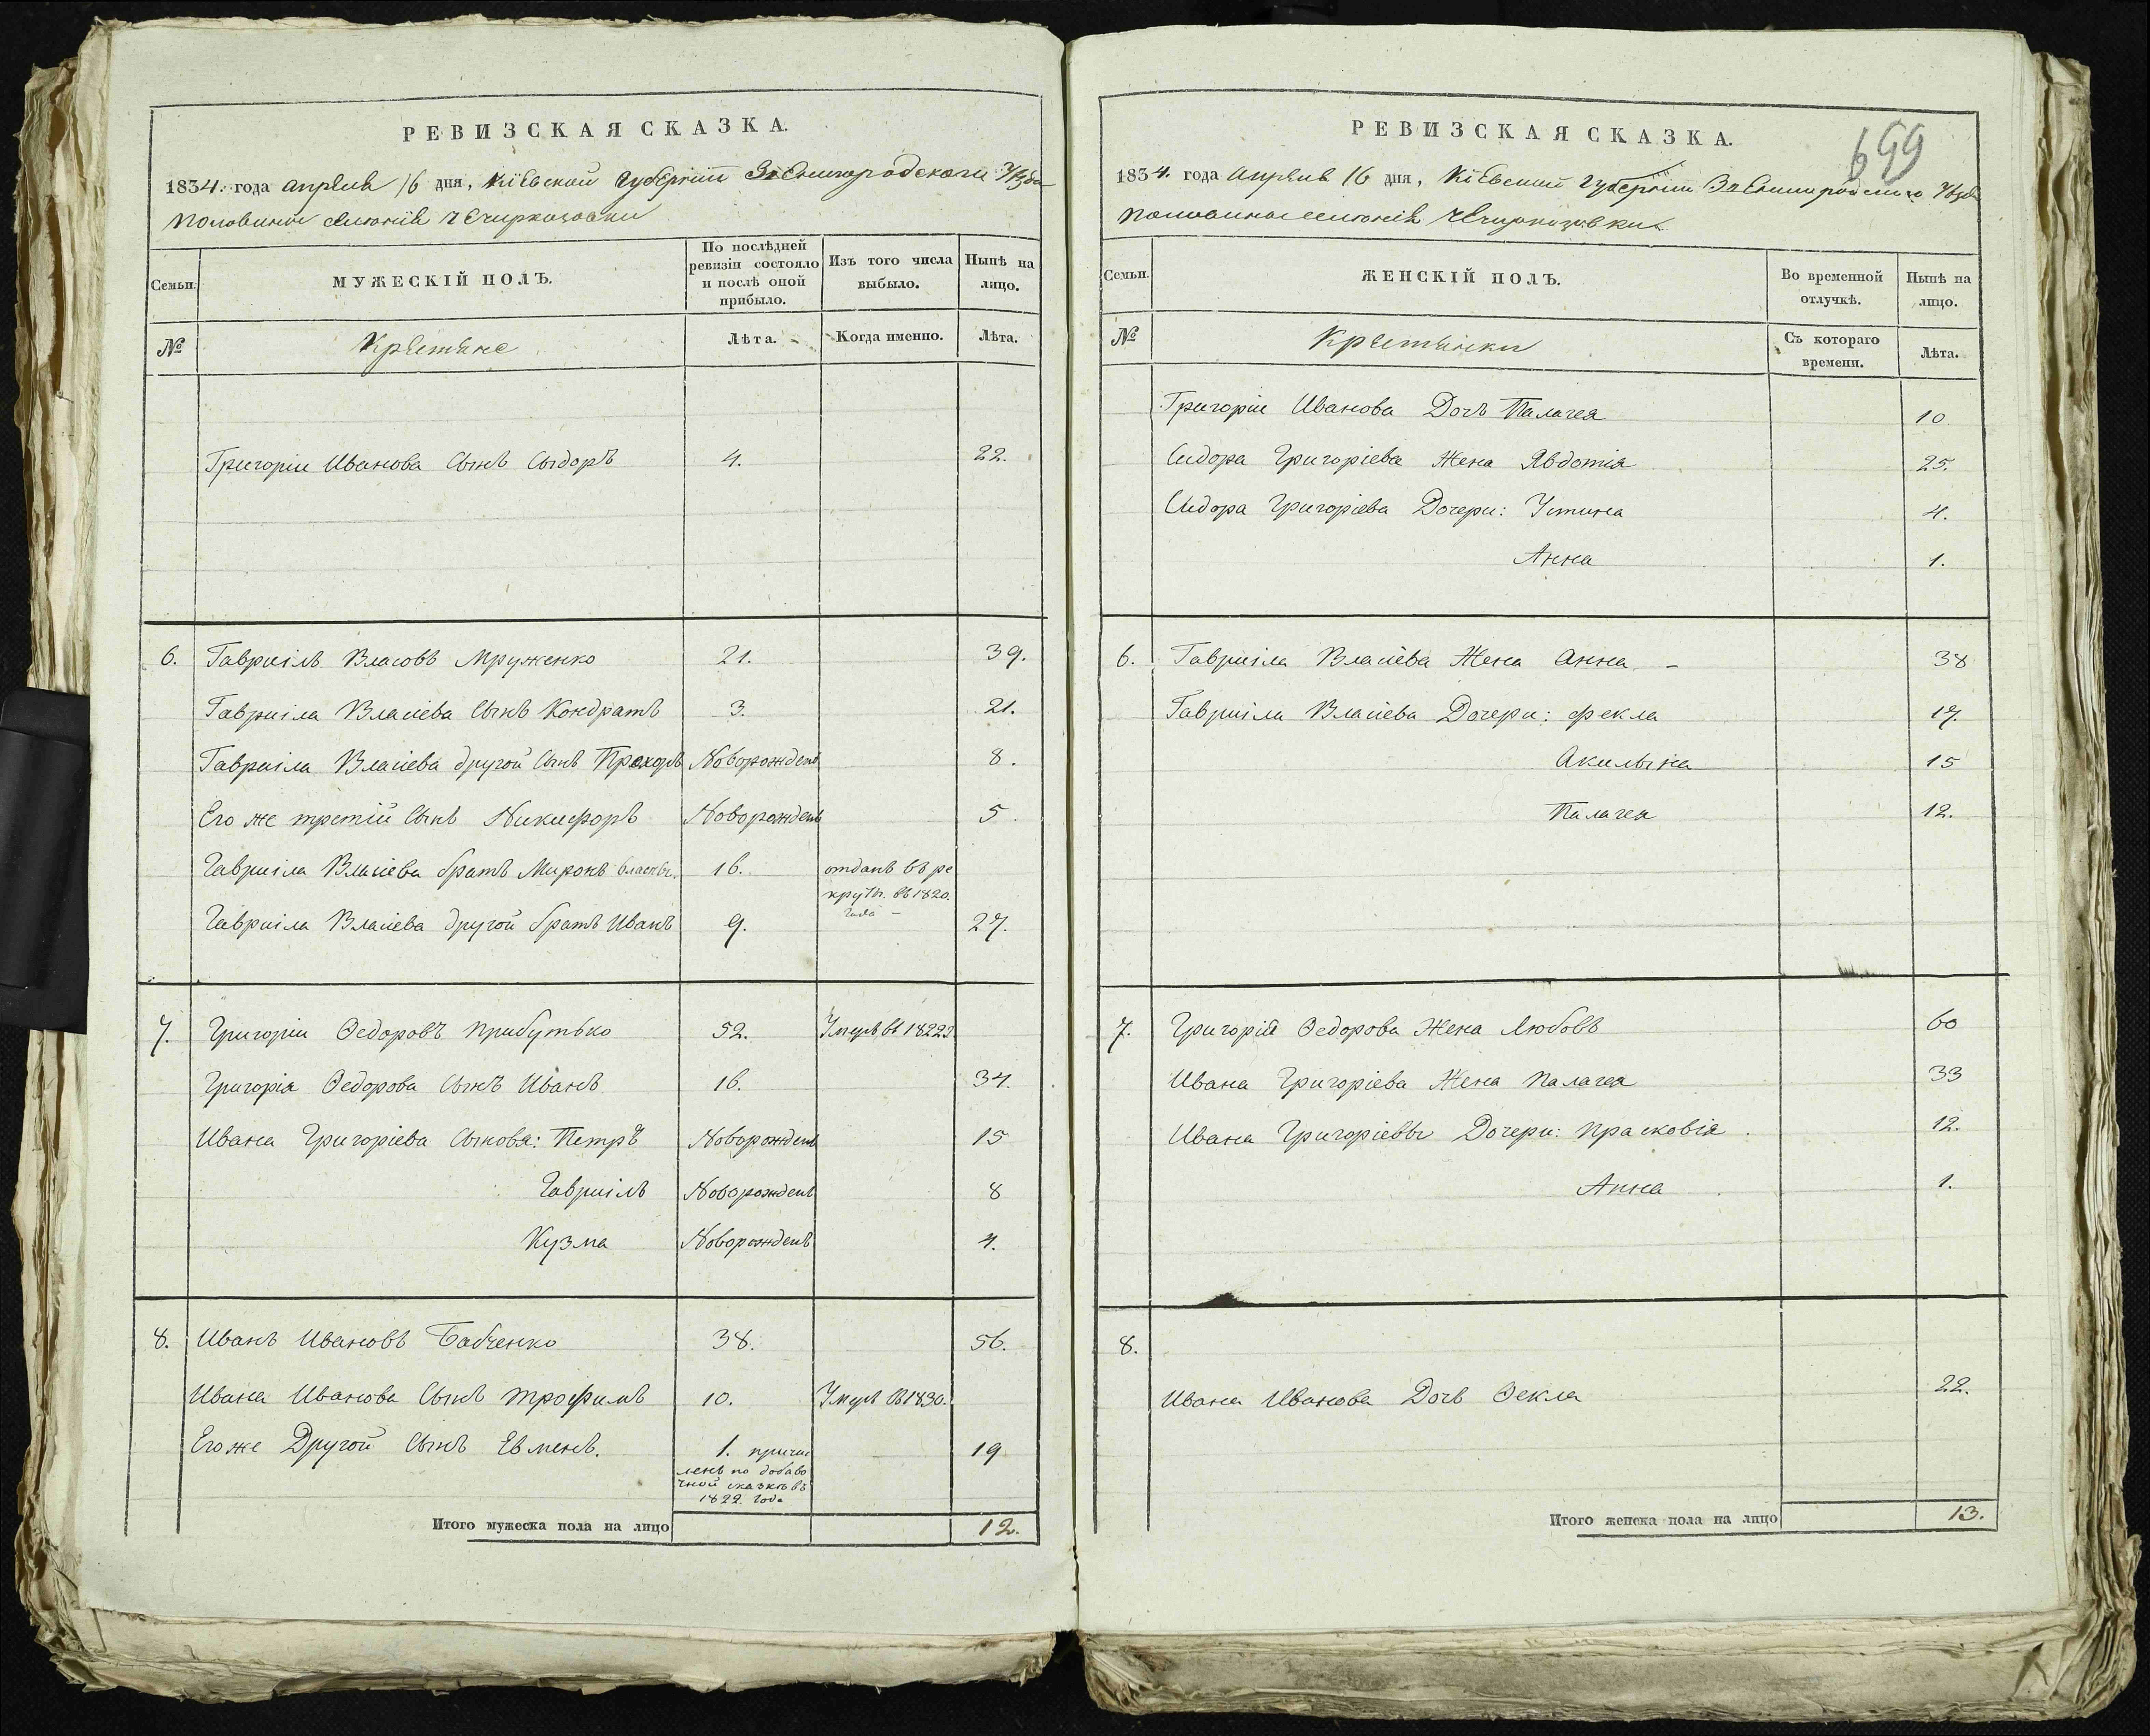 РЕВИЗСКАЯ СКАЗКА.
1834. года апреля 16 дня, Кіевской губерніи Звенигородского Уѣзда
половины селенія Чичиркозовки
Семьи.
МУЖЕСКІЙ ПОЛЪ.
По послѣдней ревизіи состояло и послѣ оной прибыло.
Изъ того числа выбыло.
Нынѣ на лицо.
№
Крестьяне
Лѣта.
Когда именно.
Лѣта.
Григорія Иванова Сынъ Сыдоръ 4. 22.
6. Гавриілъ Власовъ Мруженко 21. 39.
Гавриіла Власіева Сынъ Кондратъ 3. 21.
Гавриіла Власіева другой Сынъ Прохоръ Новорожденъ 8.
Его же третій Сынъ Никифоръ Новорожденъ 5.
Гавриіла Власіева братъ Миронъ 16. отданъ въ ре
круты. въ 1820.
года
Гавриіла Власіева другой братъ Иванъ 9. 27.
7. Григорій Ѳедоровъ Прибутько 52. Умеръ въ 1822
Григорія Ѳедорова Сынъ Иванъ 16. 34.
Ивана Григоріева Сыновя: Петръ Новорожденъ 15
Гавриілъ Новорожденъ 8
Кузма Новорожденъ 4.
8. Иванъ Ивановъ Бабченко 38. 56.
Ивана Иванова Сынъ Трофимъ 10. Умеръ въ 1830.
Его же Другой Сынъ Евменъ. 1. причис 19
ленъ по добаво
чной сказкѣ въ
1822. года
Итого мужеска пола на лицо 12.
699
РЕВИЗСКАЯ СКАЗКА.
1834. года апреля 16 дня, Кіевской губерніи Звенигородского Уѣзда
половины селенія Чичиркозовки
Семьи.
ЖЕНСКІЙ ПОЛЪ.
Во временной отлучкѣ.
Нынѣ на лицо.
№
Крестьянки
Съ котораго времени.
Лѣта.
Григорія Иванова Дочь Палагея 10
Сидора Григоріева Жена Явдотія 25.
Сидора Григоріева Дочери: Устина 4.
Анна 1.
6. Гавриіла Власіева Жена Анна 38
Гавриіла Власіева Дочери: Фекла 17.
Акилына 15
Палагея 12.
7. Григорія Ѳедорова Жена Любовъ 60
Ивана Григоріева Жена Палагея 33
Ивана Григоріевы Дочери: Прасковія 12.
Анна 1.
8.
Ивана Иванова Дочь Ѳекла 22.
Итого женска пола на лицо 13.